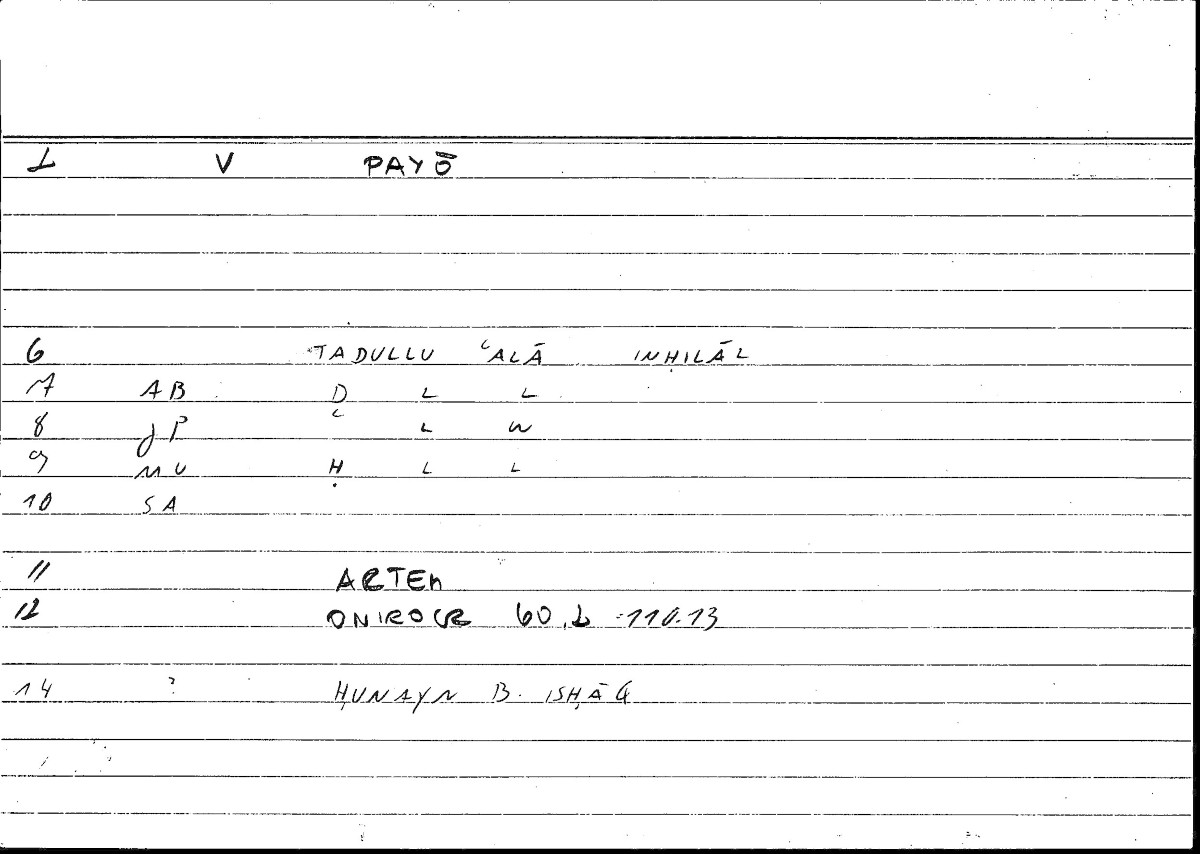 1 V PAYŌ
6 TADULLU ʿALĀ INḤILĀL
7 AB D L L
8 JP ʿ L W
9 MU Ḥ L L
10 SA
11 ARTEM
12 ONIROCR 60.1 110.13
14 ? ḤUNAYN B. ISḤĀQ